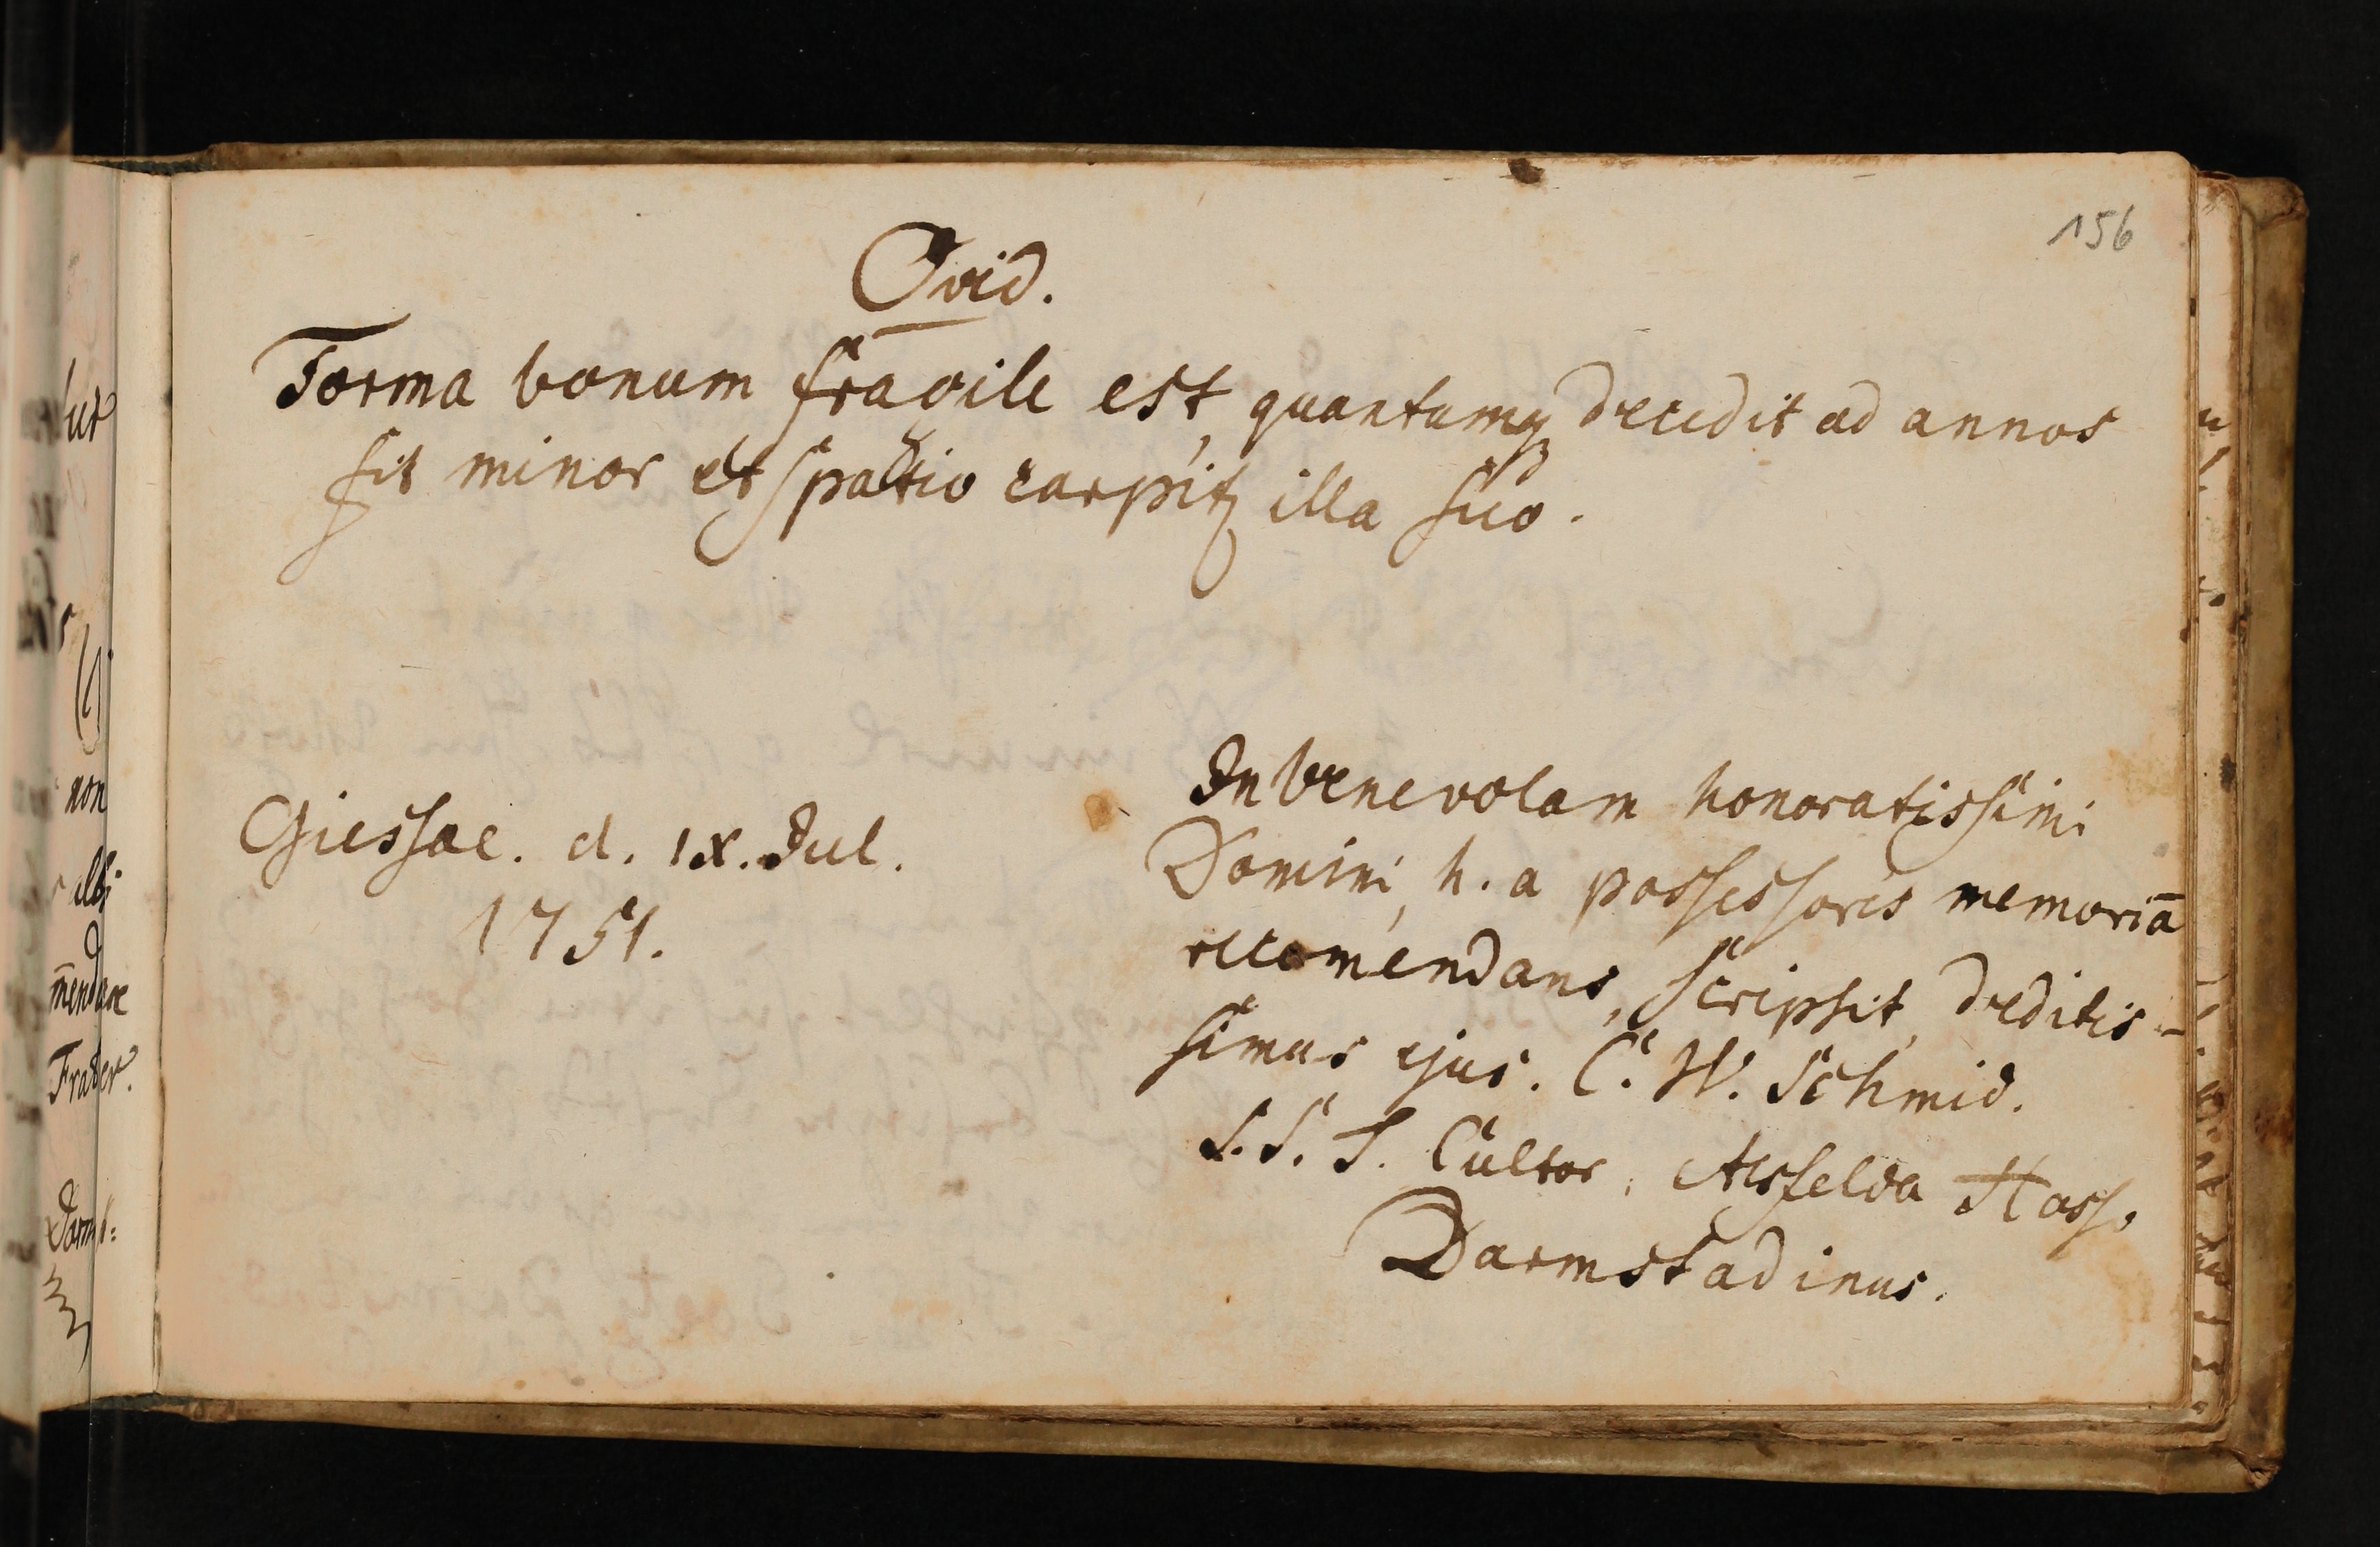 156
Ovid.
Forma bonum fragile est, quantumq decedit ad annos
fit minor et spatio carpitz illa suo.
Giessae. d. IX. Jul.
1751.
In benevolam honoratissimi
Domini, h. a possessoris memoriā
recom̄endans, scripsit, deditis-
simus ejus. C. W. Schmid.
S. S. T. Cultor, Alsfelda Hass.
Darmstadinus.
non
albi
m̄endare
Frater.